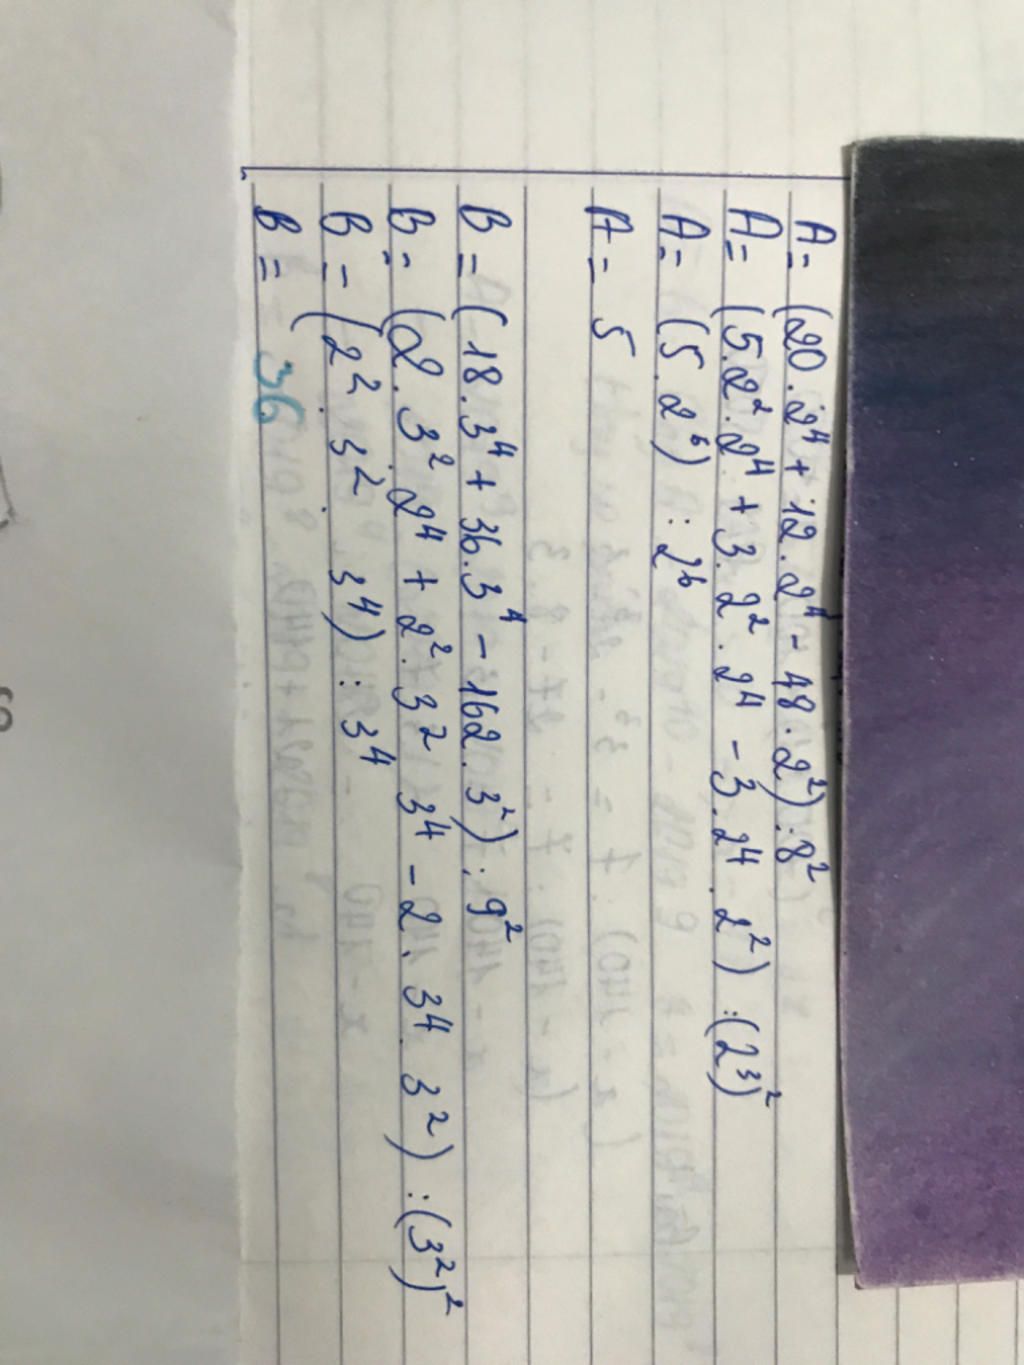 A = (20.2⁴ + 12.2⁴ - 48.2²) : 8²
A = (5.2².2⁴ + 3.2².2⁴ - 3.2⁴.2²) : (2³)²
A = (5.2⁶) : 2⁶
A = 5
B = (18.3⁴ + 36.3⁴ - 162.3²) : 9²
B = (2.3².2⁴ + 2².3².3⁴ - 2.3⁴.3²) : (3²)²
B = (2².3².3⁴) : 3⁴
B = 36